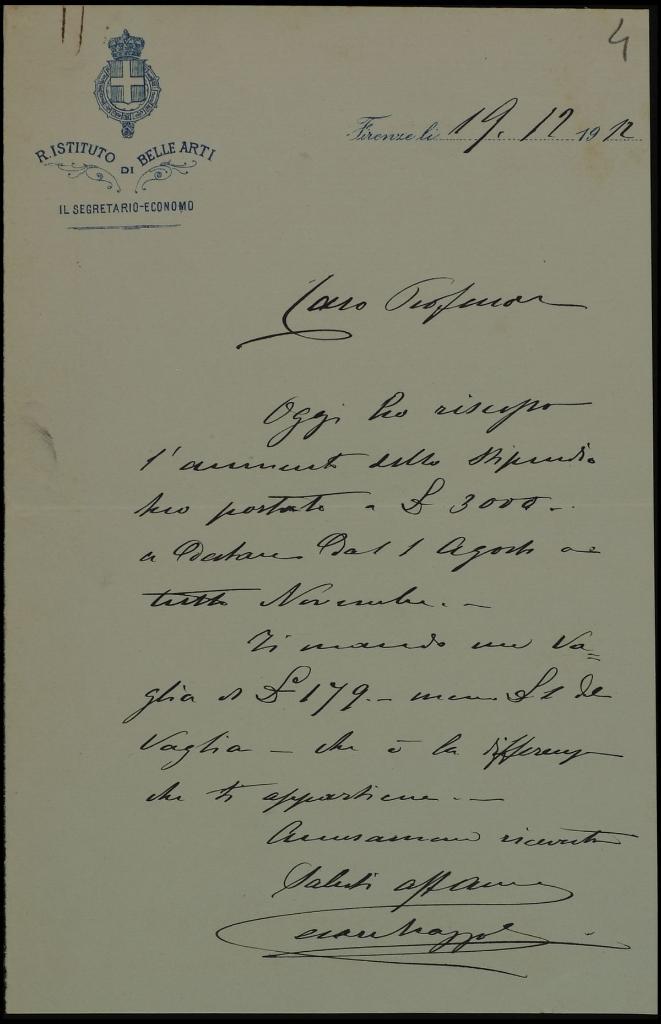 4
R. ISTITUTO DI BELLE ARTI
IL SEGRETARIO-ECONOMO
Firenze li 19. 12 1912
Caro Professore
Oggi ho riscosso
l'aumento dello stipendio
portato a £ 3000 -
a Datare Dal 1 Agosto a
tutto Novembre. -
Ti mando un Va=
glia di £ 179. - meno £ 1 de
Vaglia - che è la differenza
che ti appartiene. -
ricevuta
Saluti aff